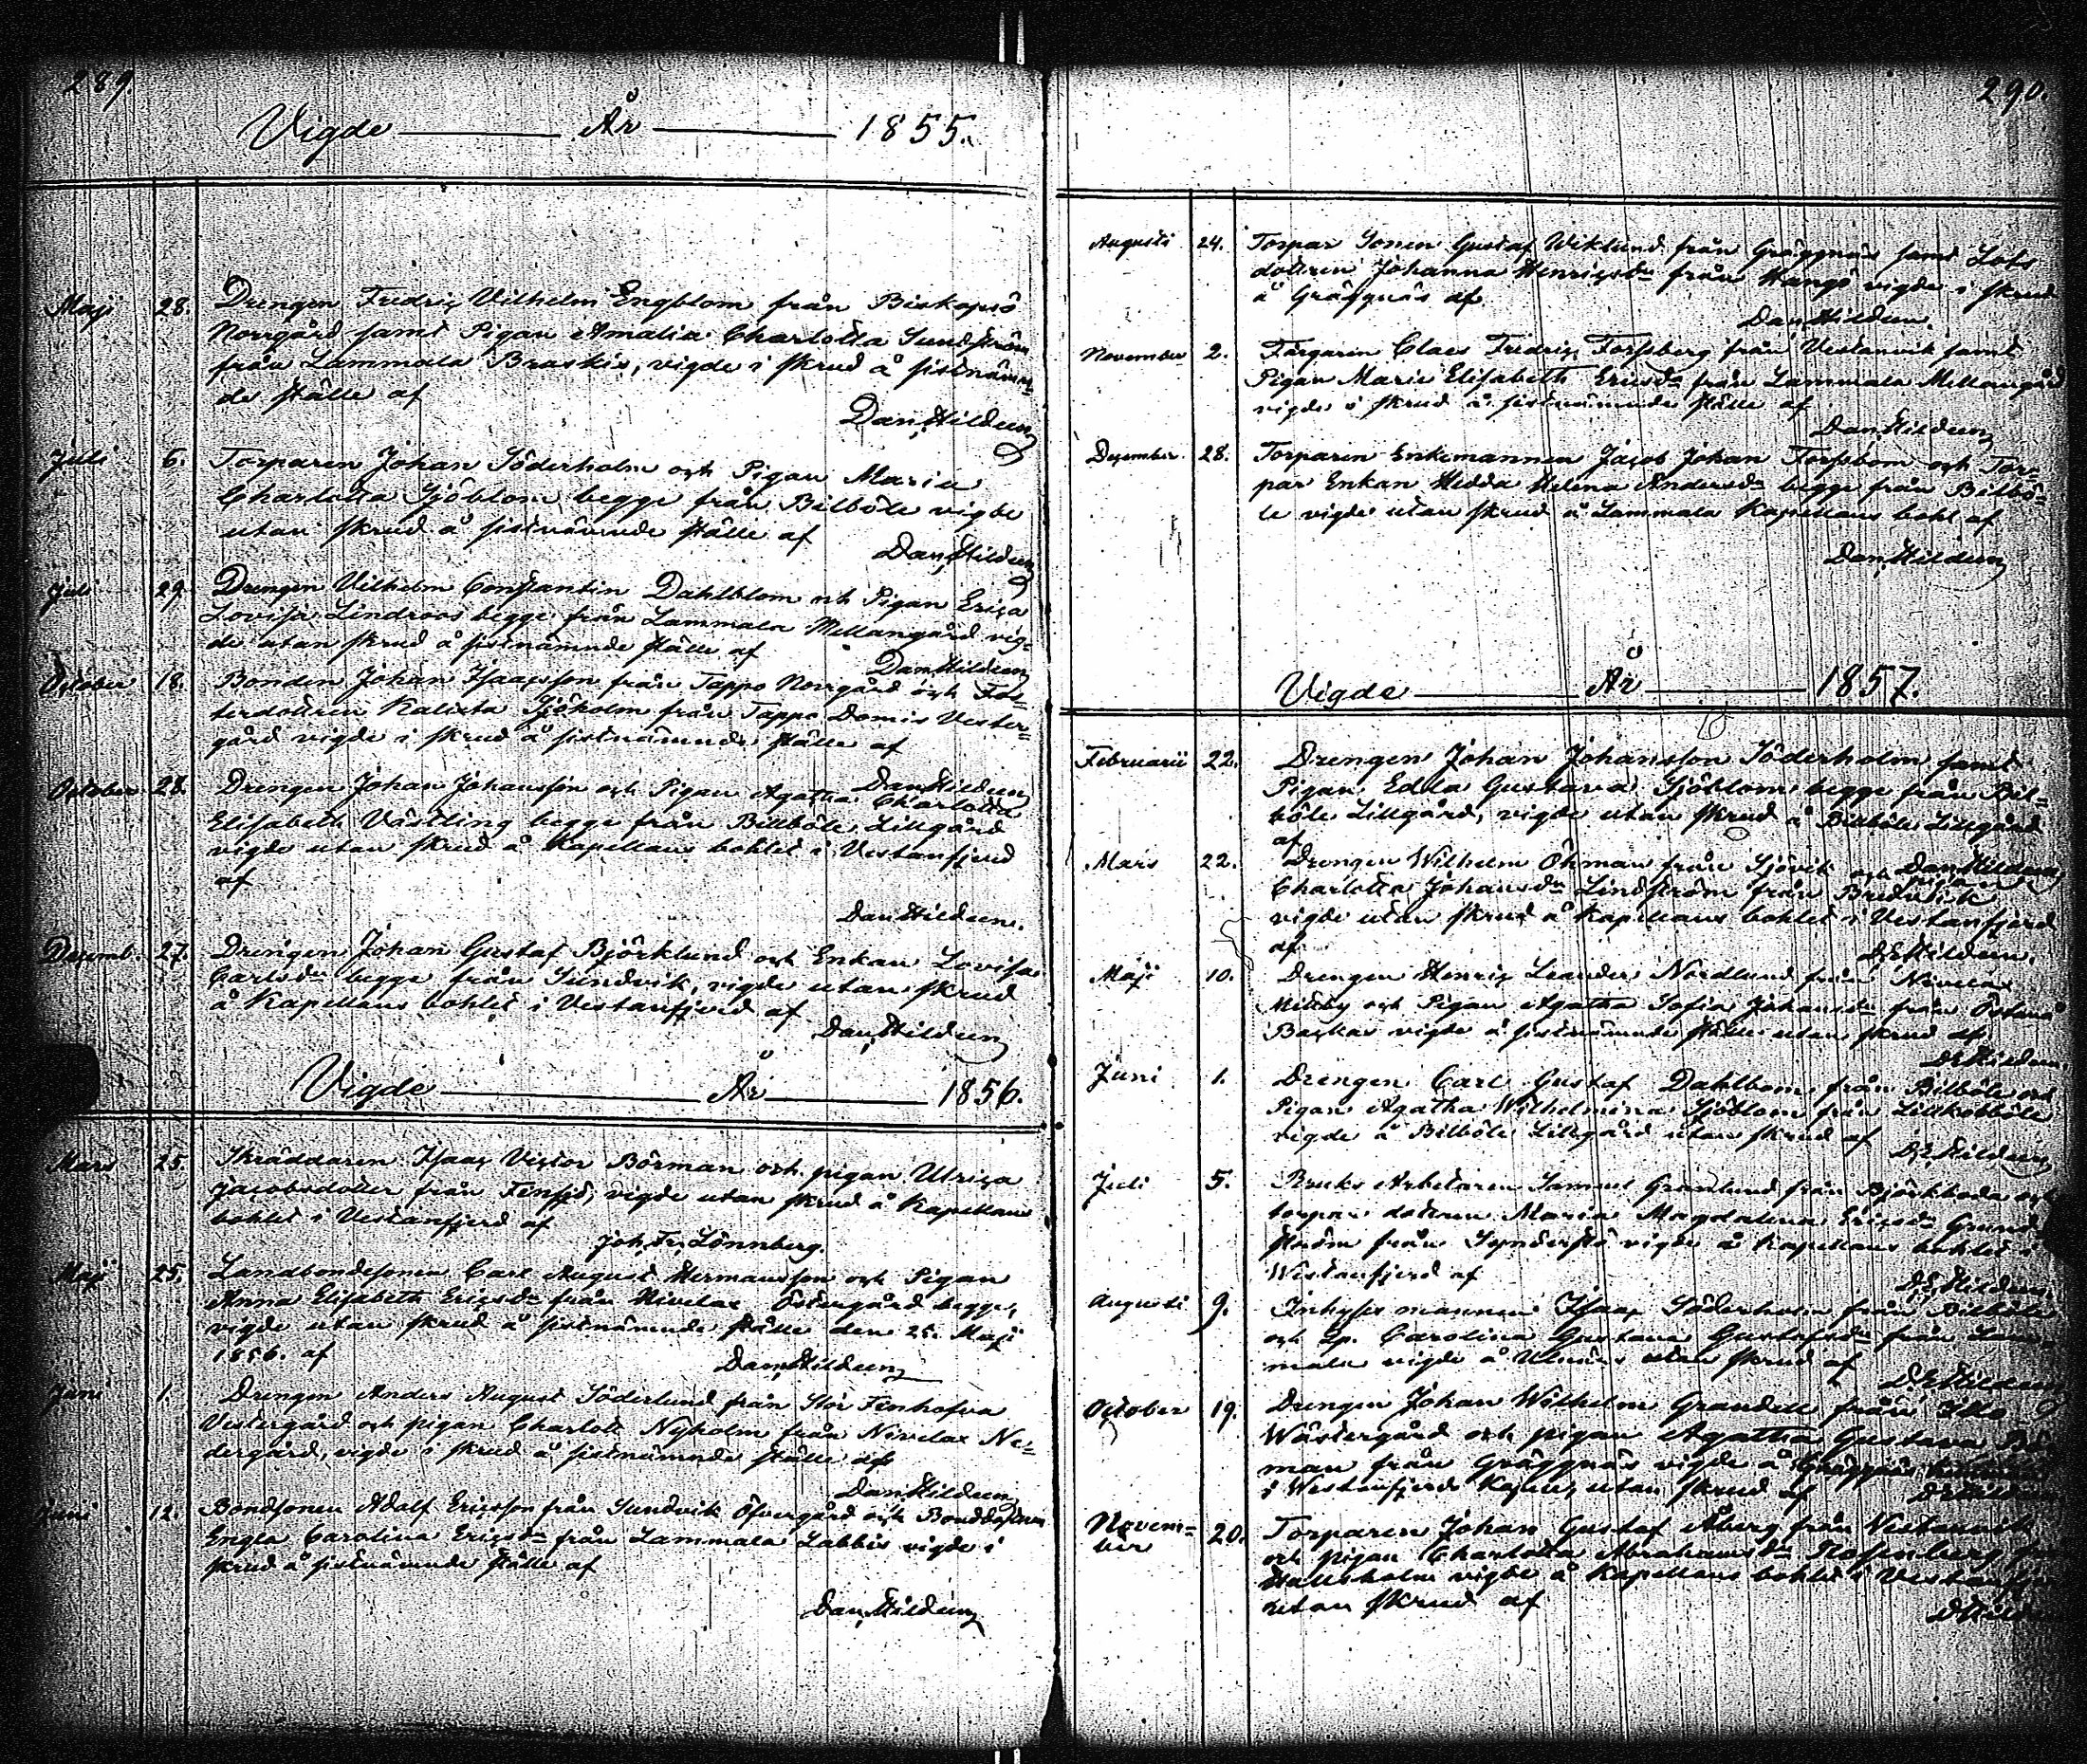 289.
Vigde År 1855.
Maji 28. Drengen Fredric Vilhelm Engblom från Biskopsö
Norrgård samt Pigan Amalia Charlotta Sundström
från Lammala Braskis, vigde i skrud å sistnämn=
de ställe af
Dan. Hildeen
Juli 6. Torparen Johan Söderholm och Pigan Maria
Charlotta Sjöblom begge från Bilböle vigde
utan skrud å sistnämnde ställe af Dan. Hildeen
Juli 29. Drengen Vilhelm Constantin Dahlblom och Pigan Erica
Lovisa Lindroos begge från Lammala Mellangård vig=
de utan skrud å sistnämnde ställe af
Dan. Hildeen
October 18. Bonden Johan Isacsson från Tappo Norrgård och Fos=
terdottren Kalixta Sjöholm från Tappo Domis Vester=
gård vigde i skrud å sistnämnde ställe af
Dan. Hildeen
October 28. Drengen Johan Johansson och Pigan Agatha Charlotta
Elisabeth Västling begge från Billböle Lillgård
vigde utan skrud å Kapellans bohlet i Vestanfjerd
af
Dan. Hildeen.
Decemb. 27. Drengen Johan Gustaf Björklund och Enkan Lovisa
Carlsdr begge från Sundvik, vigde utan skrud
å Kapellans bohlet i Vestanfjerd af
Dan. Hildeen
Vigde År 1856.
Mars 25. Skräddaren Isaac Victor Börman och pigan Ulrica
Jacobsdotter från Fensjö, vigde utan skrud å Kapellans
bohlet i Vestanfjerd af
Joh. Fr. Lönnberg.
Maji 25. Landbondesonen Carl August Hermansson och Pigan
Anna Elisabeth Ericsdr från Nivelax Östergård begge,
vigde utan skrud å sistnämnde ställe den 25. Maji
1856. af
Dan. Hildeen
Juni 1. Drengen Anders August Söderlund från Stor Finhofva
Vestergård och pigan Charlott Nyholm från Nivelax Ne=
dergård, vigde i skrud å sistnämnde ställe af
Dan. Hildeen
Juni 12. Bondsonen Adolf Ericsson från Sundvik Öfvergård och Bonddottren
Engla Carolina Ericsdr från Lammala Labbis vigde i
skrud å sistnämnde ställe af
Dan. Hildeen
290.
Augusti 24. Torpar Sonen Gustaf Wiklund från Gräggnäs samt Lots
dottren Johanna Henricsdr från Hangö vigde i skrud
å Gräggnäs af
Dan. Hildeen.
November 2. Färgaren Claes Fredric Forssberg från Vestanvik samt
Pigan Maria Elisabeth Ericsdr från Lammala Mellangård
vigde i skrud å sistnämnde ställe af
Dan. Hildeen
December 28. Torparen Enkemannen Jacob Johan Forssbom och Tor=
par Enkan Hedda Helena Andersdr begge från Bilbö=
le vigde utan skrud å Lammala Kapellans bohl af
Dan. Hildeen
Vigde År 1857.
Februarii 22. Drengen Johan Johansson Söderholm samt
Pigan Edla Gustava Sjöblom begge från Bil=
böle Lillgård, vigde utan skrud å Bilböle Lillgård
af
Dan. Hildeen
Mars 22. Drengen Wilhelm Öhman från Sjövik och Pigan
Charlotta Johansdr Lindström från Bredvik
vigde utan skrud å Kapellans bohlet i Vestanfjerd
af
D. E. Hildeen.
Maji 10. Drengen Henric Leander Nordlund från Nivelax
Nedby och Pigan Agatha Sofia Johansdr från Östanå
Backas vigde å sistnämnde ställe utan skrud af
D. E. Hildeen.
Juni 1. Drengen Carl Gustaf Dahlbom från Bilböle och
Pigan Agatha Wilhelmina Sjöblom från Lillkobböle
vigde å Bilböle Lillgård utan skrud af
D. E. Hildeen
Juli 5. Bruks Arbetaren Samuel Granlund från Björkboda och
torpar dottren Maria Magdalena Ericsdr Grund
ström från Synderstö vigde å Kapellans bohlet i
Westanfjerd af
D. E. Hildeen.
Augusti 9. Inhyses mannen Isaac Söderholm från Bilböle
och Qp. Carolina Gustava Gustafsdr från Lam=
mala vigde å utan skrud af
D. E. Hildeen
October 19. Drengen Johan Wilhelm Grandell från Illo
Wästergård och pigan Agatha Gustava Bö
man från Gräggnäs vigde å
i Westanfjerds Kapell, utan skrud af
D. E. Hildeen
Novem=
ber 20. Torparen Johan Gustaf Åberg från Vestanvik
och pigan Charlotta Abrahamsdr
Hallsholm vigde å Kapellans bohlet i Vestanfjer
utan skrud af
D. Hildeen